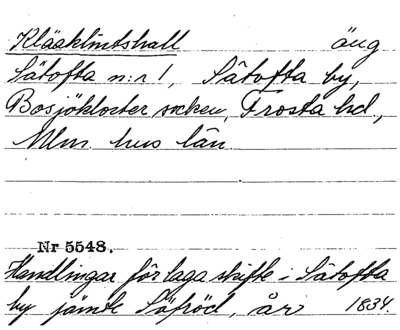 Klääklintshall äng
Sätofta n:r 1, Sätofta by,
Bosjökloster socken, Frosta hd.,
Mlm. hus län.
Nr 5548.
Handlingar för laga skifte i Sätofta
by jämte Söfröd, år 1834.